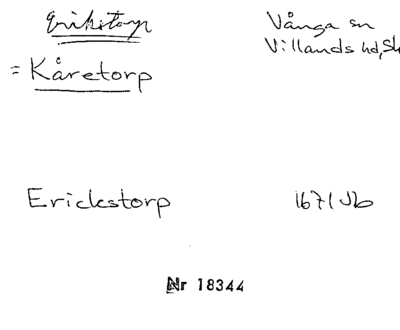 Erikstorp
Vånga sn
Villands hd, Sk
= Kåretorp
Erickstorp 1671 Jb
Nr 18344